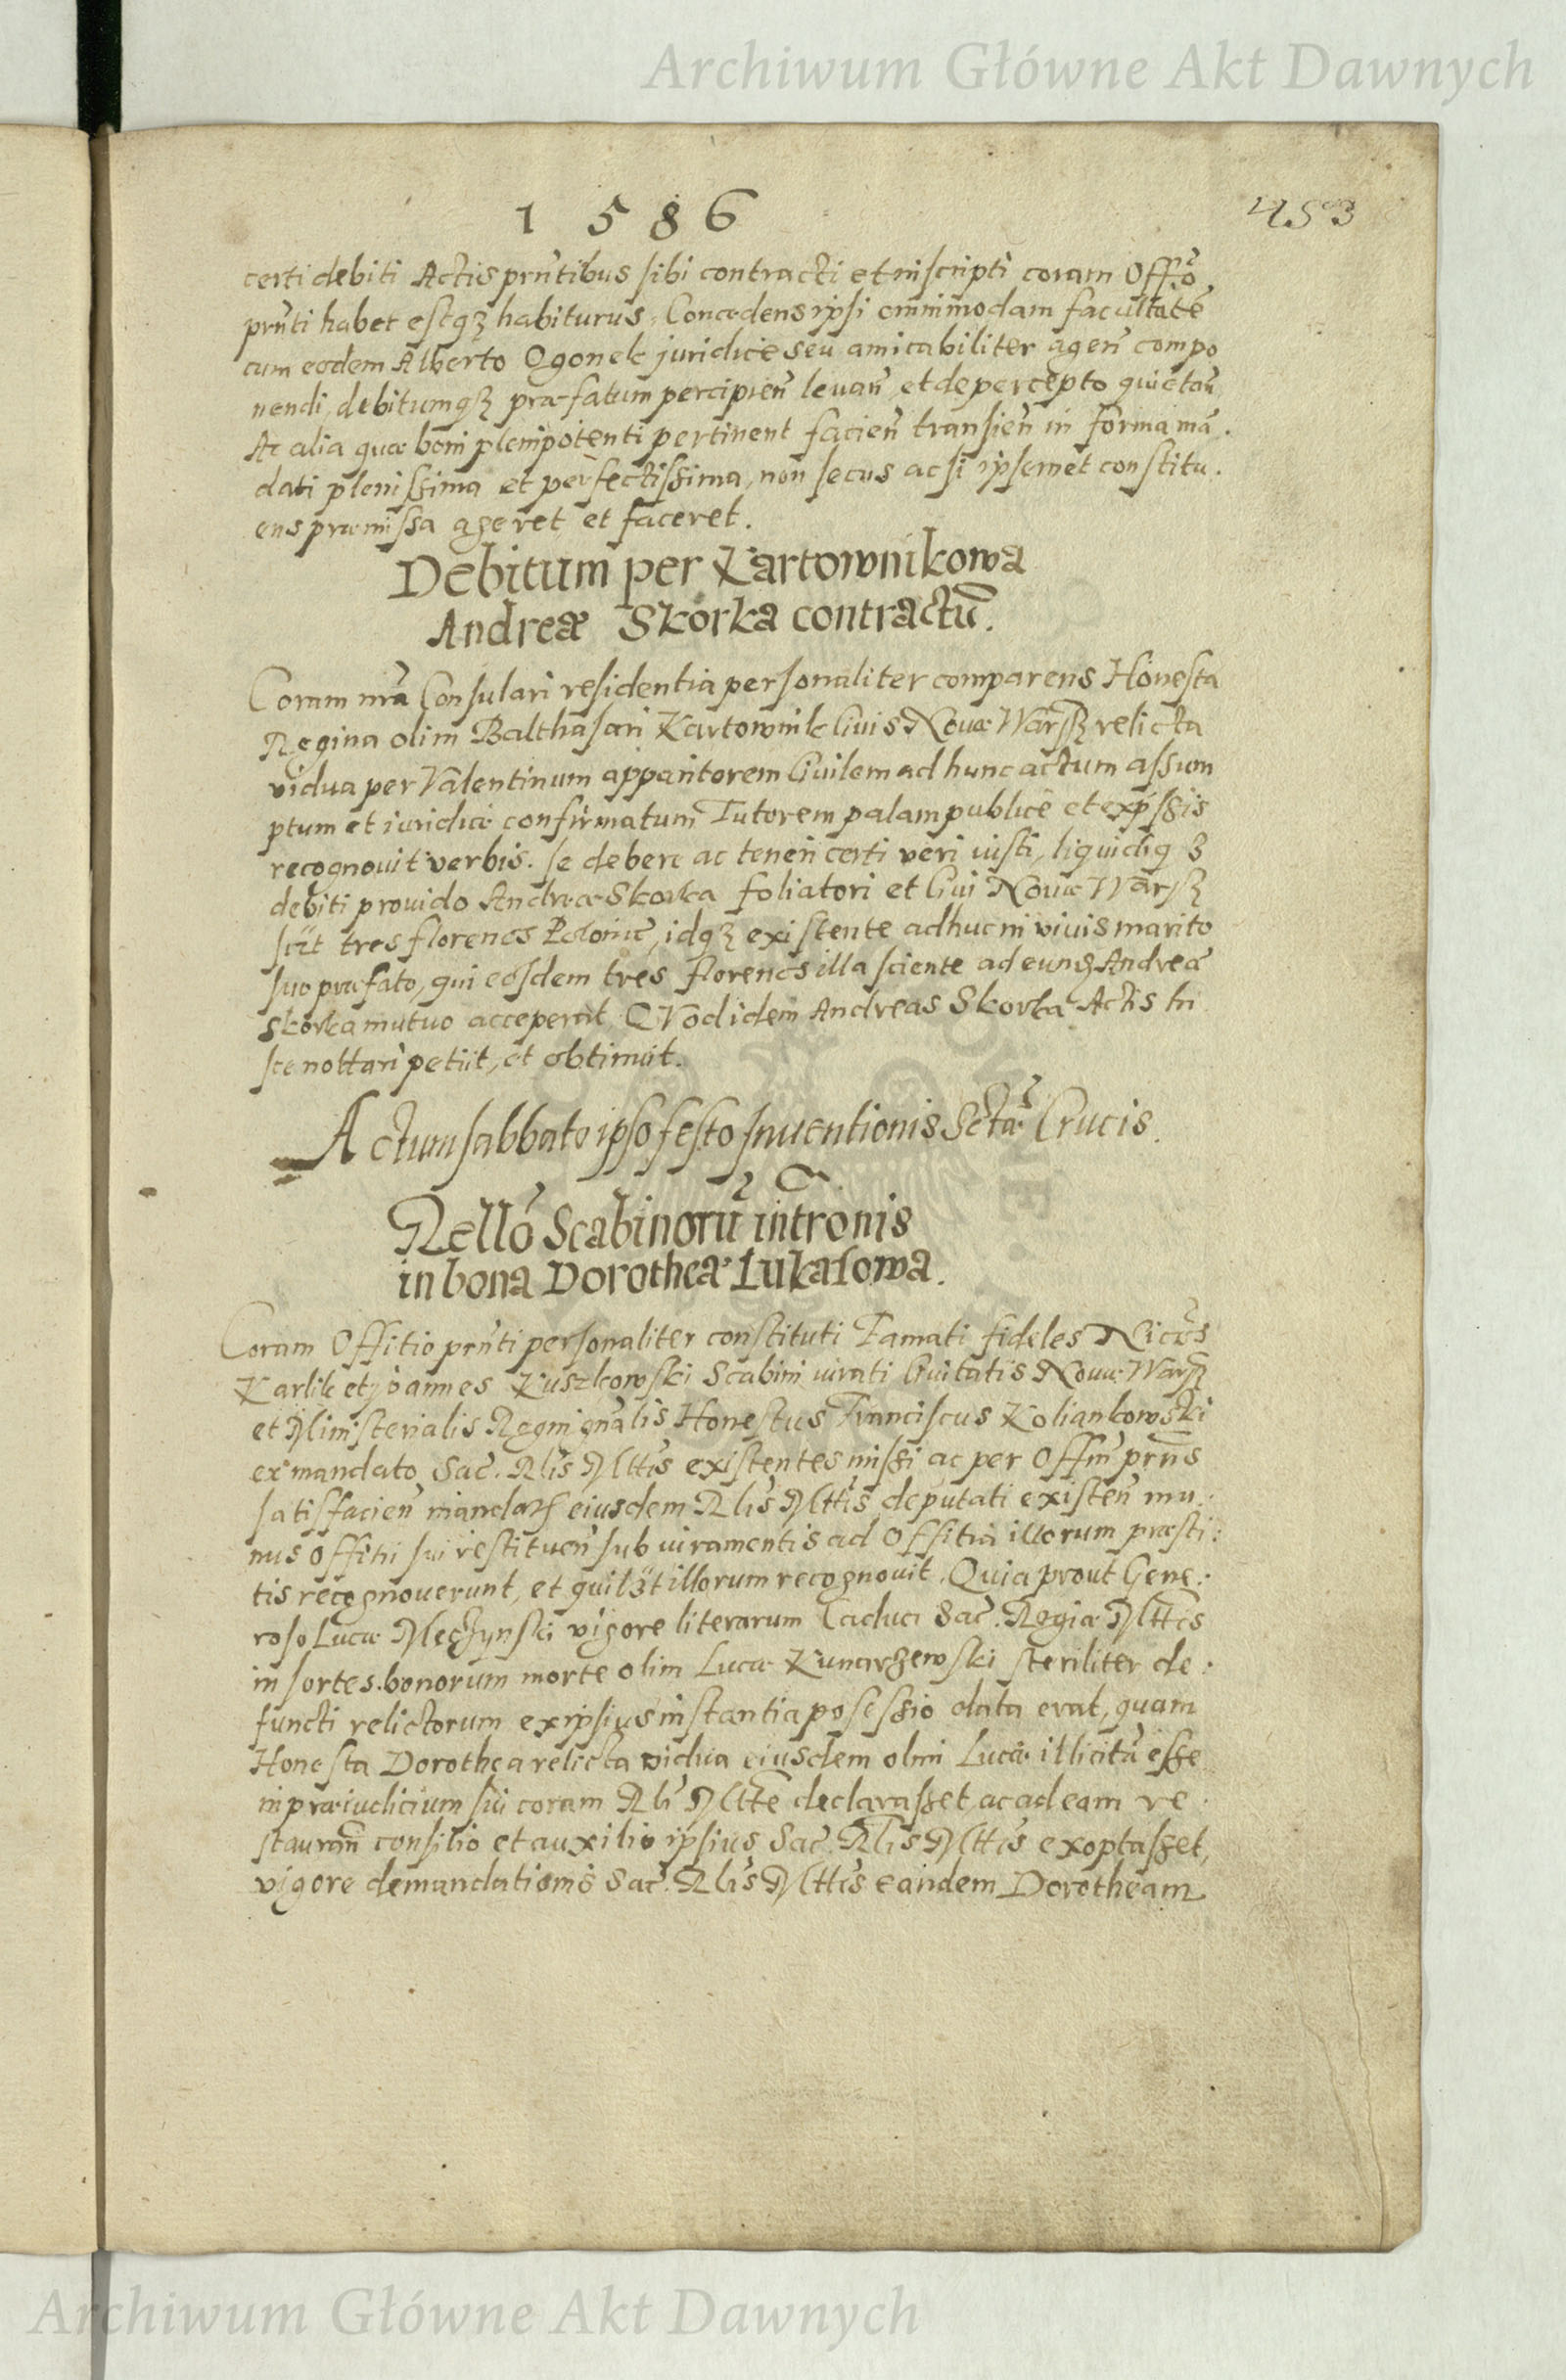 Archiwum Główne Akt Dawnych
1586
453
certi debiti Actis prñtibus sibi contracti et inscripti coram Offõ
prñti habet estqȝ habiturus, Concedens ipsi omnimodam facultatẽ
cum eodem Alberto Ogonek juridice seu amicabiliter ageñ compo
nendi, debitumqȝ præfatum percipieñ levañ et de percepto quietañ
Ac alia quæ boni plenipotenti pertinent facieñ transieñ in forma mã.
dati plenissima et perfectissima, non secus ac si ipsemet constitu.
ens præmissa ageret et faceret.
Debitum per Kartownikowa
Andreæ Skorka contractũ.
Coram nrã Consulari residentia personaliter comparens Honesta
Regina olim Balthasari Kartownik Civis Novæ Warsȝ relicta
vidua per Valentinum apparitorem Civilem ad hunc actum assum
ptum et iuridice confirmatum Tutorem palam publice et expssis
recognovit verbis. se debere ac teneri certi veri iusti, liquidiqȝ
debiti provido Andreæ Skorka foliatori et Civi Novæ Warsȝ
scilt tres florenos Poloniæ, idqȝ existente adhuc in vivis marito
suo præfato, qui eosdem tres florenos illa sciente ad eundȝ Andreã
Skorka mutuo acceperat QVod idem Andreas Skorka Actis hi
sce nottari petiit, et obtinuit.
Actum sabbato ipso festo Inventionis Sctæ Crucis.
Rellõ Scabinorũ intronis
in bona Dorotheæ Lukasowa.
Coram Offitio prñti personaliter constituti Famati fideles Nicõs
Karlik et joannes Kuszkowski Scabini iurati Civitatis Novæ Warsȝ
et Ministerialis Regni gnãlis Honestus Franciscus Koliankowski
ex mandato Sac. Rĩs Mttis existentes missi ac per Offm prñs
satisfacieñ mandatis eiusdem Rĩs Mttis deputati existeñ mu:
nus offitii sui restitueñ sub iuramentis ad Offitia illorum præsti:
tis recognoverunt, et quilȝt illorum recognovit. Quia prout Gene:
roso Lucæ Męczynski vigore literarum Caduci Sac. Regiæ Mttis
in sortes bonorum morte olim Lucæ Kunarzewski steriliter de:
functi relictorum ex ipsius instantia posessio data erat, quam
Honesta Dorothea relicta vidua eiusdem olim Lucæ illicitã esse
in præiudicium sui coram Rĩ Mtte declarasset, ac ad eam re:
staurañ consilio et auxilio ipsius Sac. Rĩs Mttis exoptasset,
vigore demandationis Sac. Rĩs Mttis eandem Dorotheam
Archiwum Główne Akt Dawnych